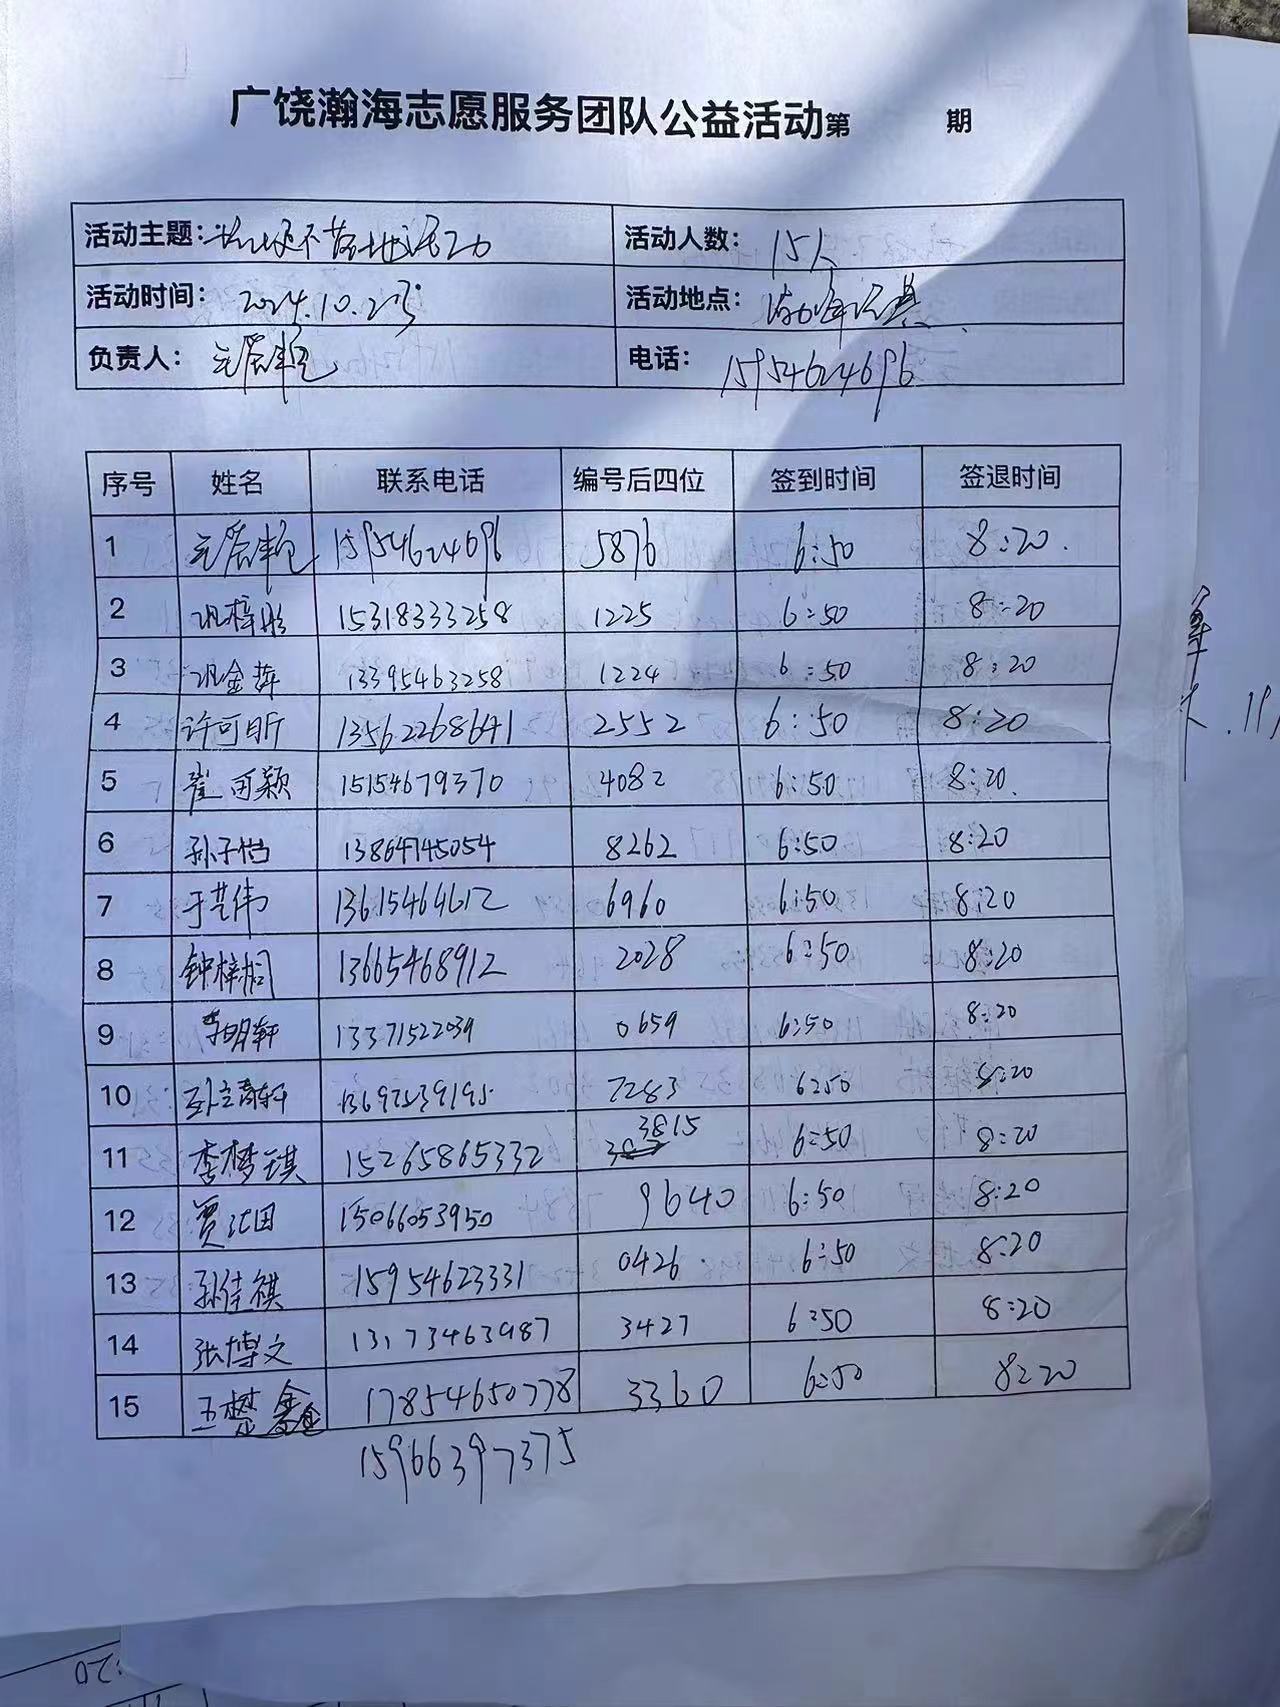 广饶瀚海志愿服务团队公益活动第 期
活动主题：垃圾不落地活动 活动人数： 15人
活动时间： 2024.10.2 活动地点：
负责人： 电话： 15954624696
序号 姓名 联系电话 编号后四位 签到时间 签退时间
1 15954624696 5876 6:50 8:20.
2 巩梓彤 15318333258 1225 6:50 8:20
3 巩金萍 13395463258 1224 6:50 8:20
4 许可昕 13562268641 2552 6:50 8:20
5 崔可颖 15154679370 4082 6:50 8:20.
6 孙子怡 13864745054 8262 6:50 8:20
7 于芸伟 13615464612 6960 6:50 8:20
8 钟梓桐 13665468912 2028 6:50 8:20
9 李明轩 13371522039 0659 6:50 8:20
10 6:50 8:20
7283
11 李梦琪 15265865332 3815 6:50 8:20
12 15066053950 9640 6:50 8:20
13 孙佳祺 15954623331 0426 6:50 8:20
14 张博文 13173463987 3427 6:50 8:20
15 王樾鑫 17854650778 3360 6:50 8:20
15966397375